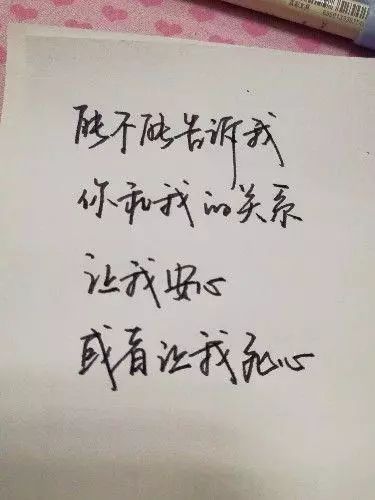 能不能告诉我
你和我的关系
让我安心
或者让我死心